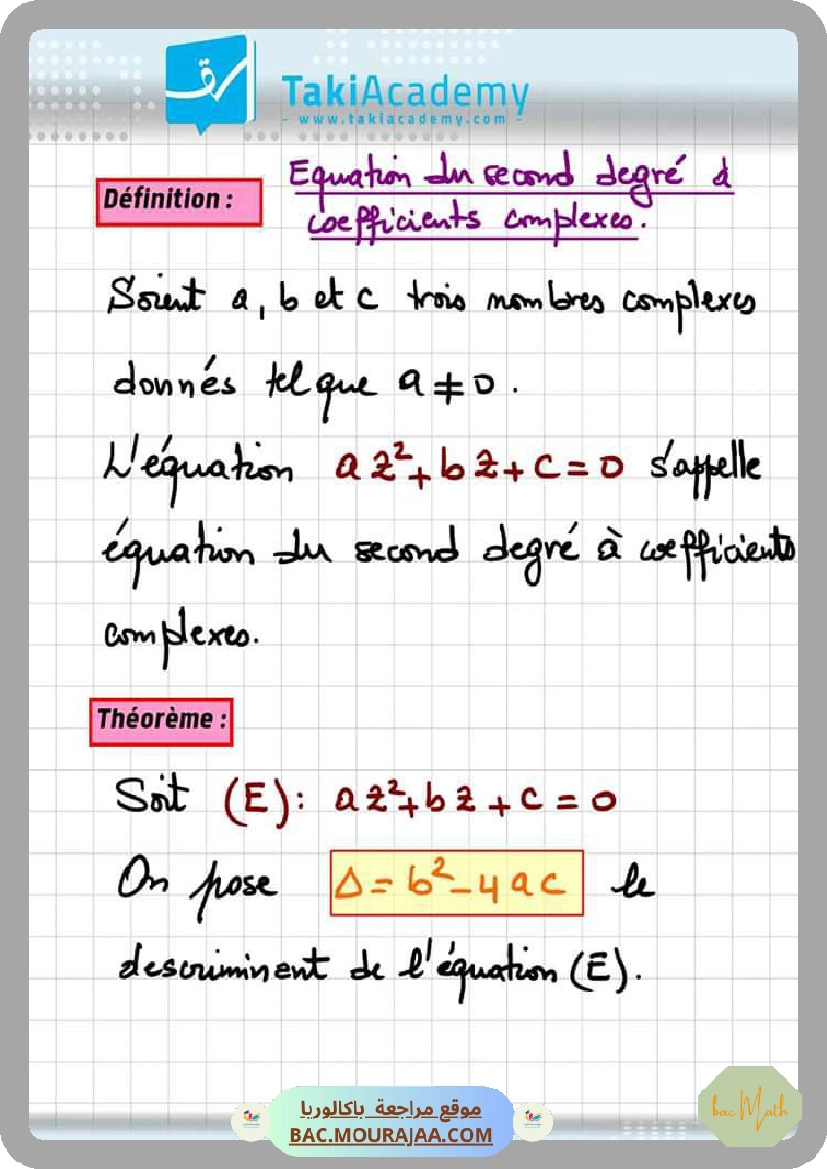 TakiAcademy
- www.takiacademy.com -
Equation du second degré à
coefficients complexes.
Définition :
Soient a, b et c trois nombres complexes
donnés tel que a ≠ 0.
L'équation az²+bz+c=0 s'appelle
équation du second degré à coefficients
complexes.
Théorème :
Soit (E): az²+bz+c=0
On pose Δ=b²-4ac le
descriminent de l'équation (E).
موقع مراجعة باكالوريا
BAC.MOURAJAA.COM
bac Math